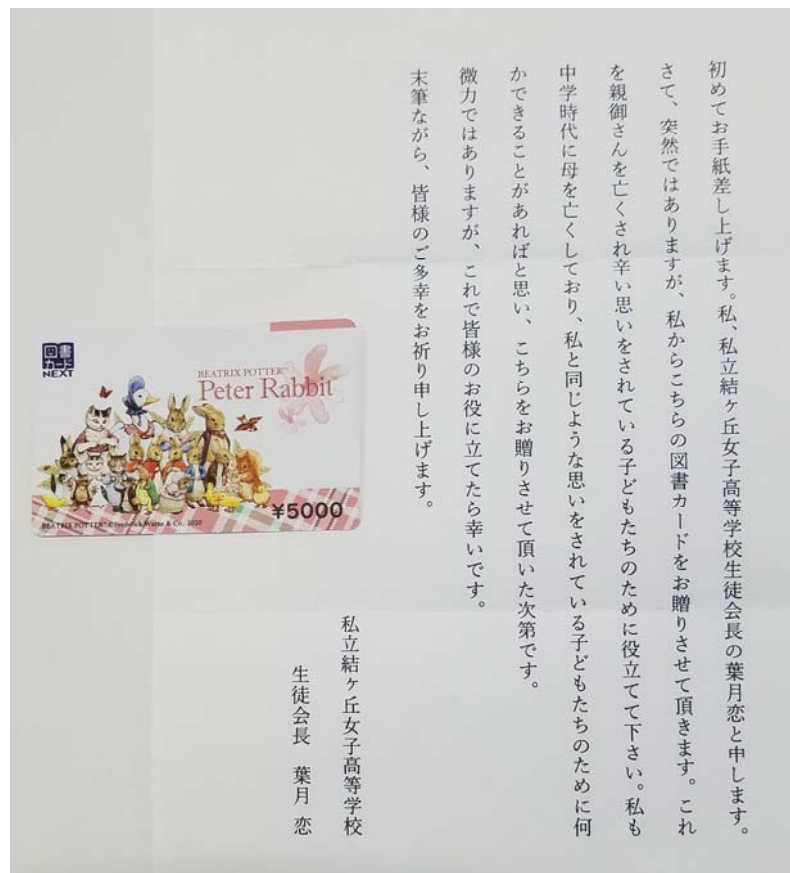 初めてお手紙差し上げます。私、私立結ヶ丘女子高等学校生徒会長の葉月恋と申します。
さて、突然ではありますが、私からこちらの図書カードをお贈りさせて頂きます。これ
を親御さんを亡くされ辛い思いをされている子どもたちのために役立てて下さい。私も
中学時代に母を亡くしており、私と同じような思いをされている子どもたちのために何
かできることがあればと思い、こちらをお贈りさせて頂いた次第です。
微力ではありますが、これで皆様のお役に立てたら幸いです。
末筆ながら、皆様のご多幸をお祈り申し上げます。
私立結ヶ丘女子高等学校
生徒会長 葉月 恋
図書
カード
NEXT
BEATRIX POTTER™
Peter Rabbit
¥5000
BEATRIX POTTER™ ©Frederick Warne & Co., 2020